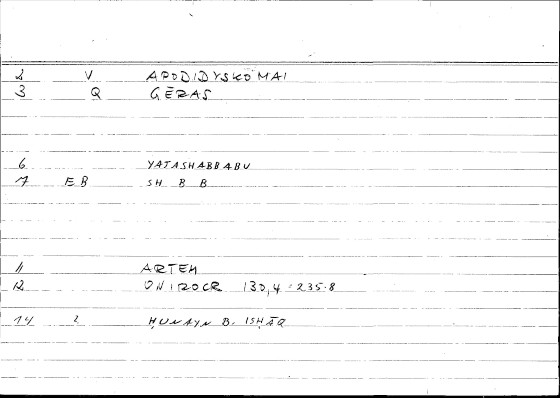 2 V APODIDYSKOMAI
3 Q GĒRAS
6 YATASHABBABU
7 EB SH B B
11 ARTEM
12 ONIROCR 130,4 = 235.8
14 2 ḤUNAYN B. ISḤĀQ